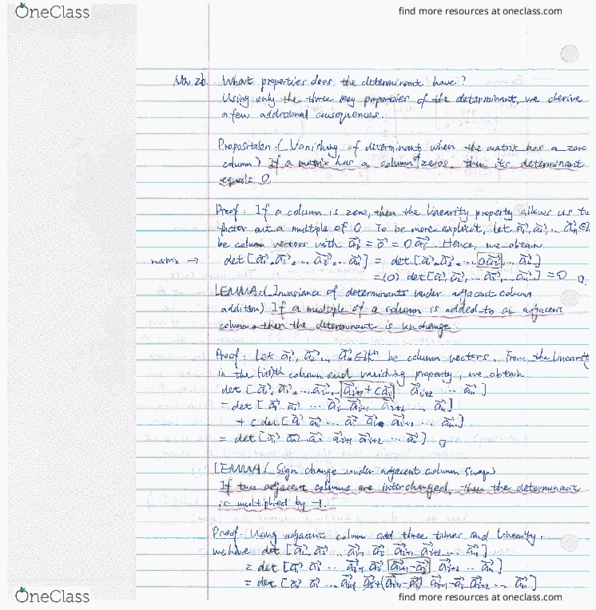 OneClass
find more resources at oneclass.com
Nov 26. What properties does the determinant have?
Using only the three key properties of the determinant, we derive
a few additional consequences.
Proposition. (Vanishing of determinant when the matrix has a zero
column) If a matrix has a column of zeros, then its determinant
equals 0.
Proof. If a column is zero, then the linearity property allows us to
factor out a multiple of 0. To be more explicit, let a₁, a₂, ... aₙ
be column vectors with = 0 = 0 Hence, we obtain
matrix → det [a₁, a₂, ... aₙ] = det [a₁, a₂, ... 0 ... aₙ]
= (0) det [a₁, a₂, ... aₙ] = 0
LEMMA. (Invariance of determinants under adjacent column
addition) If a multiple of a column is added to an adjacent
column, then the determinant is unchange
Proof. Let a₁, a₂, ..., aₙ be column vectors. From the linearity
in the (i+1)th column and vanishing property, we obtain
det [a₁, a₂ ... aᵢ, aᵢ₊₁ + c aᵢ aᵢ₊₂ ... aₙ]
= det [a₁ a₂ ... aᵢ aᵢ₊₁ aᵢ₊₂ ... aₙ]
+ c det [a₁ a₂ ... aₙ]
= det [a₁ a₂ ... aᵢ aᵢ₊₁ aᵢ₊₂ ... aₙ]
LEMMA (Sign change under adjacent column swap)
If two adjacent columns are interchanged, then the determinant
is multiplied by -1.
Proof. Using adjacent column add three times and linearity,
we have det [a₁ a₂ ... aᵢ₊₁ aᵢ aᵢ₊₂ ... aₙ]
= det [a₁ a₂ ...
= det [a₁ a₂ ...
OneClass
find more resources at oneclass.com